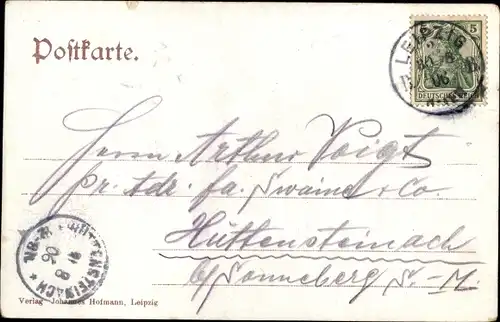 Postkarte.
LEIPZIG
5
DEUTSCHES REICH
Herrn Arthur Voigt
pr. Adr. fa. Swaine & Co.
Hüttensteinach
b/Sonneberg S.-M.
HÜTTENSTEINACH
Verlag Johannes Hofmann, Leipzig